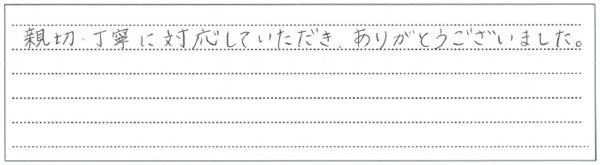 親切・丁寧に対応していただき、ありがとうございました。